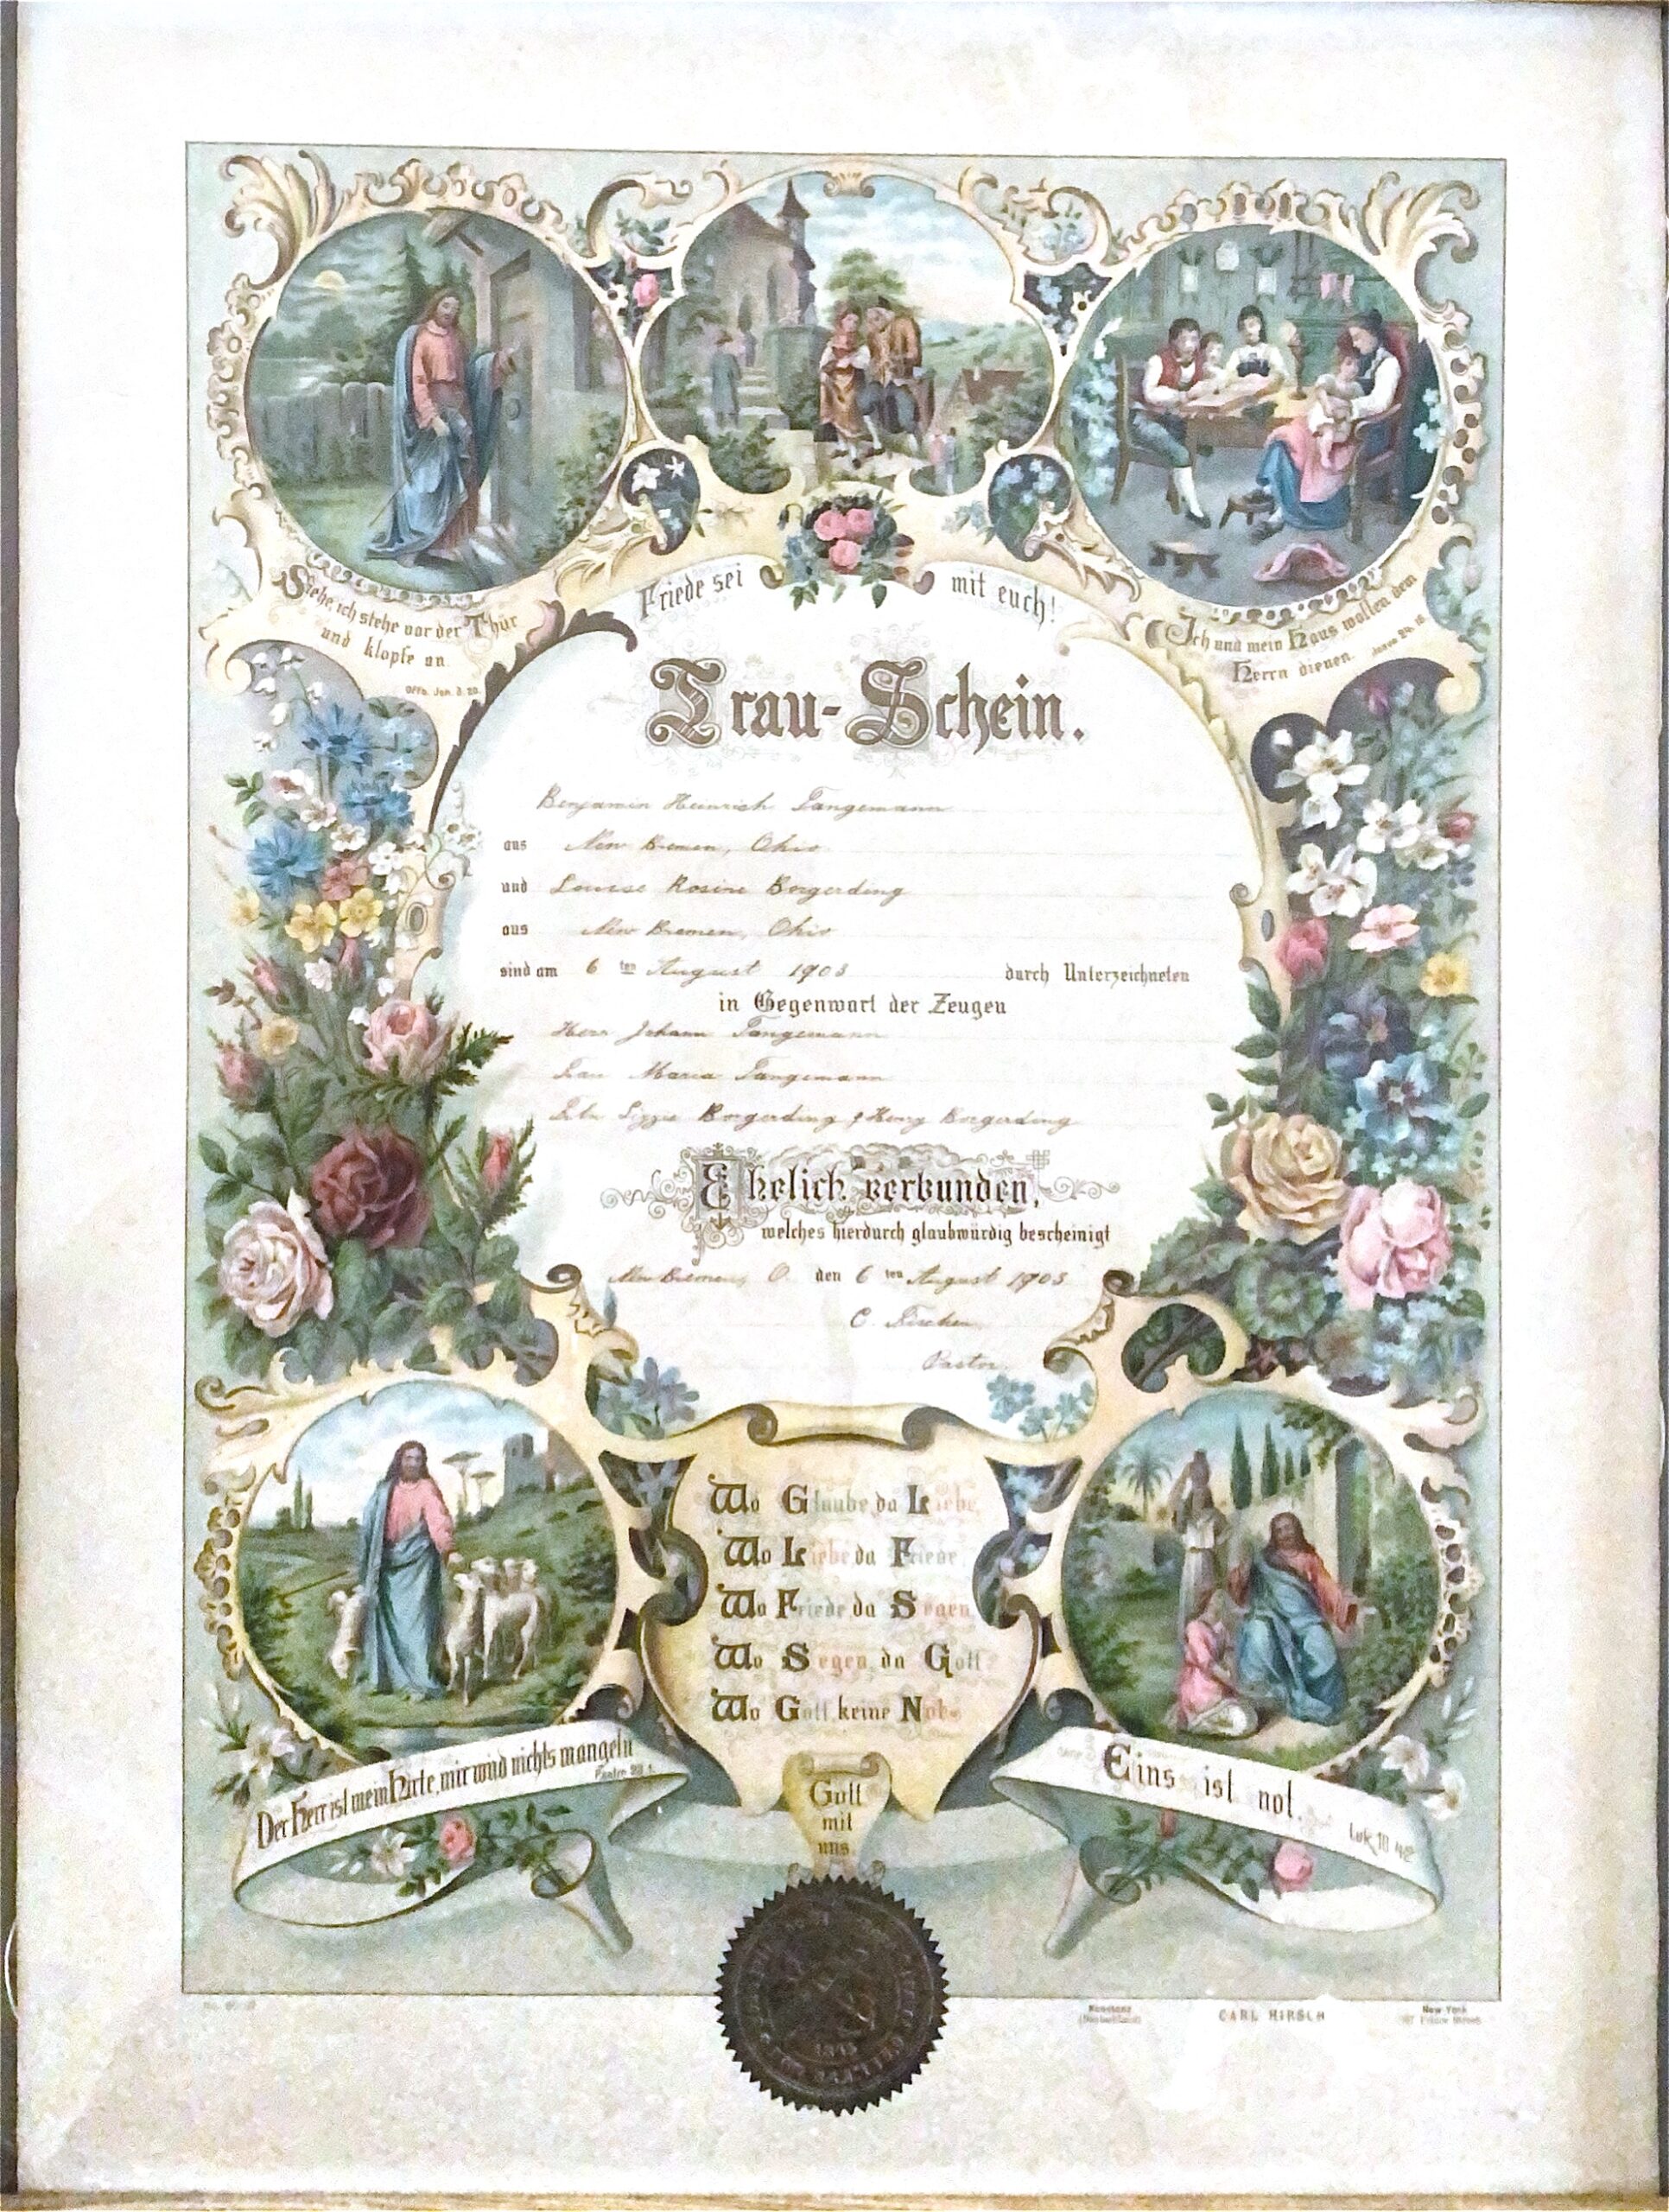 Siehe, ich stehe vor der Thür
und klopfe an.
Offb. Joh. 3. 20.
Friede sei mit euch!
Ich und mein Haus wollen dem
Herrn dienen. Josua 24. 15.
Trau-Schein.
Benjamin Heinrich Tangemann
aus New Bremen, Ohio
und Louise Rosine Borgerding
aus New Bremen, Ohio
sind am 6 ten August 1903 durch Unterzeichneten
in Gegenwart der Zeugen
Herr Johann Tangemann
Frau Maria Tangemann
Lizzie Borgerding & Henry Borgerding
Ehelich verbunden,
welches hierdurch glaubwürdig bescheinigt
New Bremen, O. den 6 ten August 1903
C. Fischer,
Pastor.
Wo Glaube, da Liebe,
Wo Liebe da Friede,
Wo Friede, da Segen,
Wo Segen, da Gott
Wo Gott, keine Not.
Der Herr ist mein Hirte, mir wird nichts mangeln
Psalm 23. 1.
Gott
mit
uns.
Eins ist not.
Luk. 10 42
1845
Konstanz CARL HIRSCH New-York